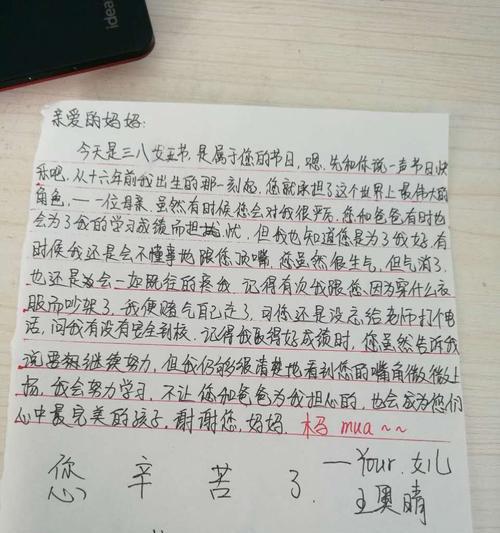 idea
亲爱的妈妈:
今天是三八女王节,是属于您的节日,嗯,先和你说一声节日快
乐吧,从十六年前我出生的那一刻起,您就承担了这个世界上最伟大的
角色,——一位母亲.虽然有时候您会对我很严厉,您和爸爸有时也
会为了我的学习成绩而担忧,但我也知道您是为了我好,有
时候我还是会不懂事地跟您顶嘴,您虽然很生气,但气消了,
也还是会一如既往的疼我.记得有次我跟您,因为穿什么衣
服而吵架了,我便赌气自己走了,可您还是没忘给老师打个电
话,问我有没有安全到校.记得我取得好成绩时,您虽然告诉我
说要继续努力,但我仍能够很清楚地看到您的嘴角微微上
扬.我会努力学习,不让您和爸爸为我担心的,也会成为您们
心中最完美的孩子,谢谢您,妈妈. mua~~
您 辛 苦 了.
——Your.女儿
王奥晴